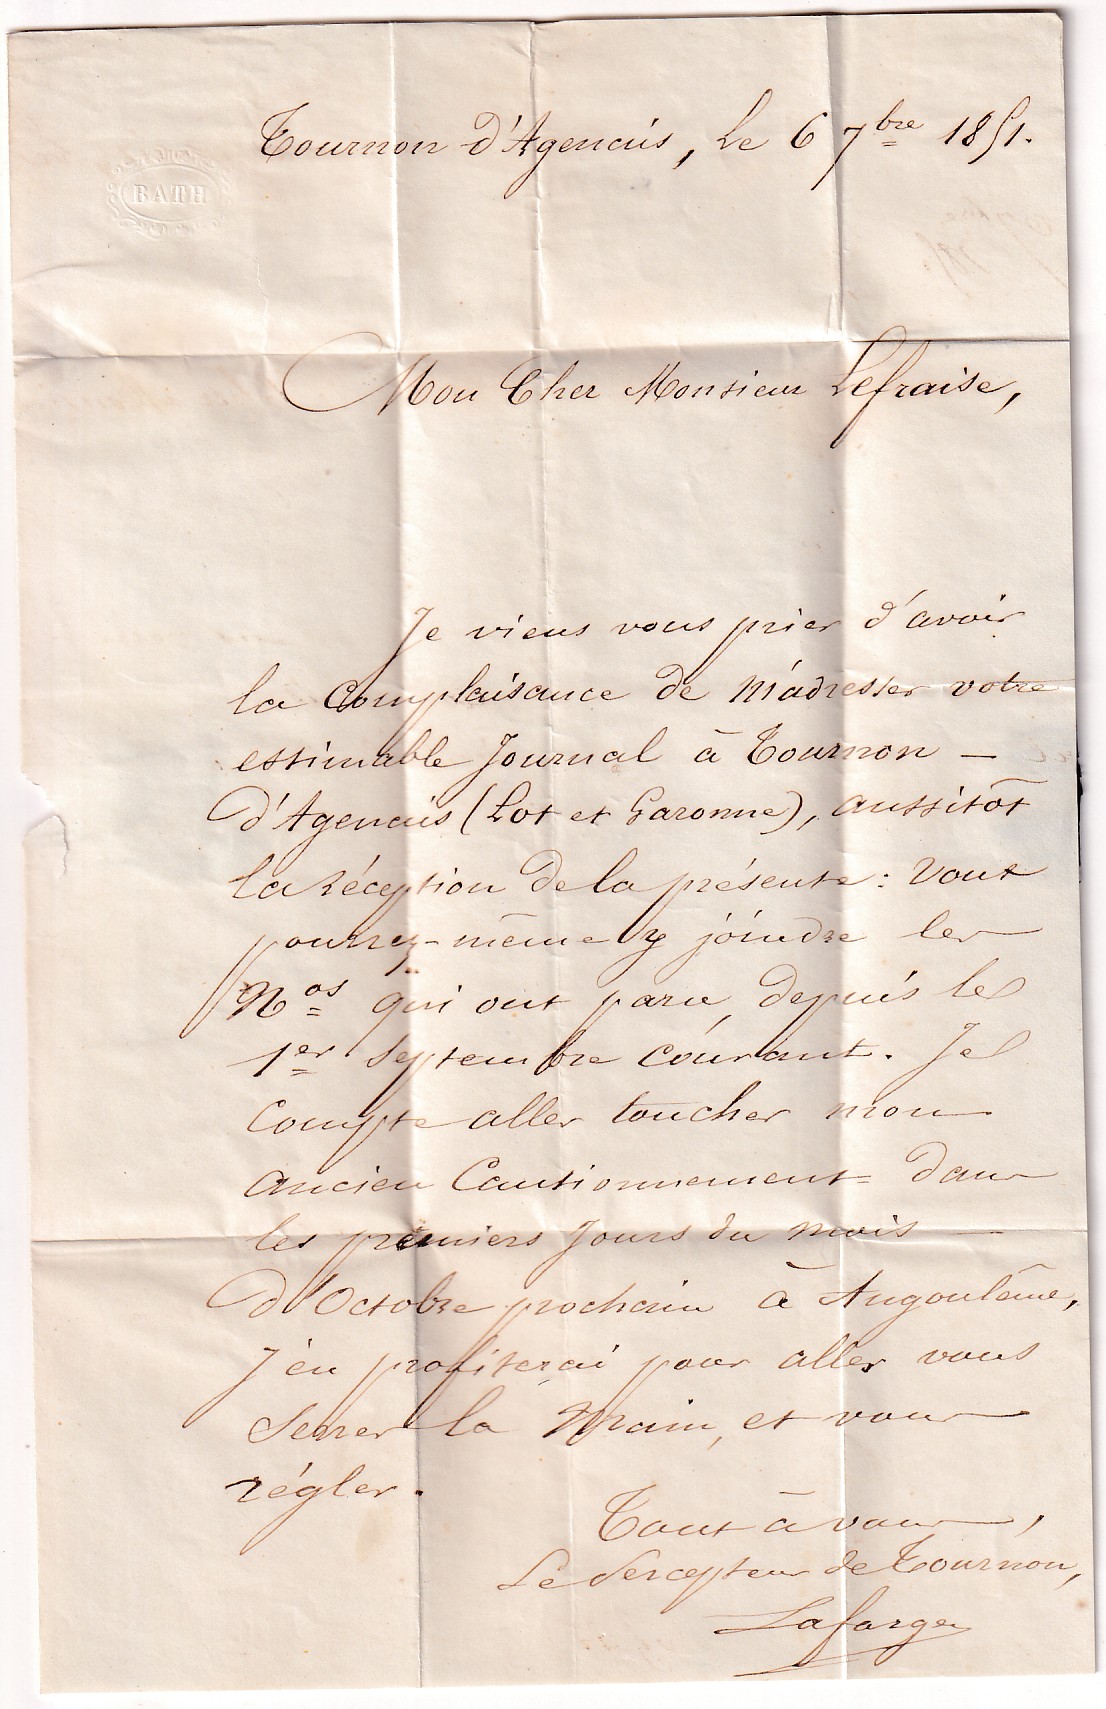 BATH
Tournon d'Agenais, le 6 7bre 1851.
Mon Cher Monsieur Lefraise,
Je viens vous prier d'avoir
la Complaisance de m'adresser votre
estimable Journal à Tournon —
d'Agenais (Lot et Garonne), aussitôt
la réception de la présente : Vous
pourrez-même y joindre les
Nos qui ont paru, depuis le
1er Septembre courant. Je
Compte aller toucher mon
ancien Cautionnement dans
les premiers Jours du mois —
d'Octobre prochain à Angoulême,
J'en profiterai pour aller vous
Serrer la Main, et vous
régler.
Tout à vous,
Le Percepteur de Tournon,
Lafarge